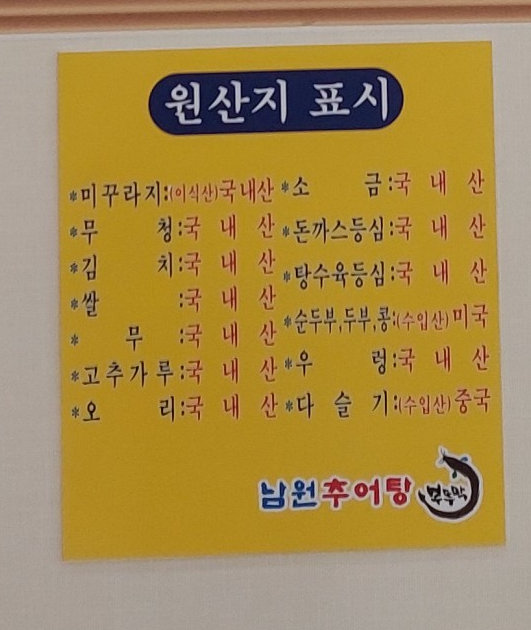 원산지 표시
*미꾸라지:(이식산)국내산
*무 청:국 내 산
*김 치:국 내 산
*쌀 :국 내 산
* 무 :국 내 산
*고추가루:국 내 산
*오 리:국 내 산
*소 금:국 내 산
*돈까스등심:국 내 산
*탕수육등심:국 내 산
*순두부,두부,콩:(수입산)미국
*우 렁:국 내 산
*다 슬 기:(수입산)중국
남원추어탕